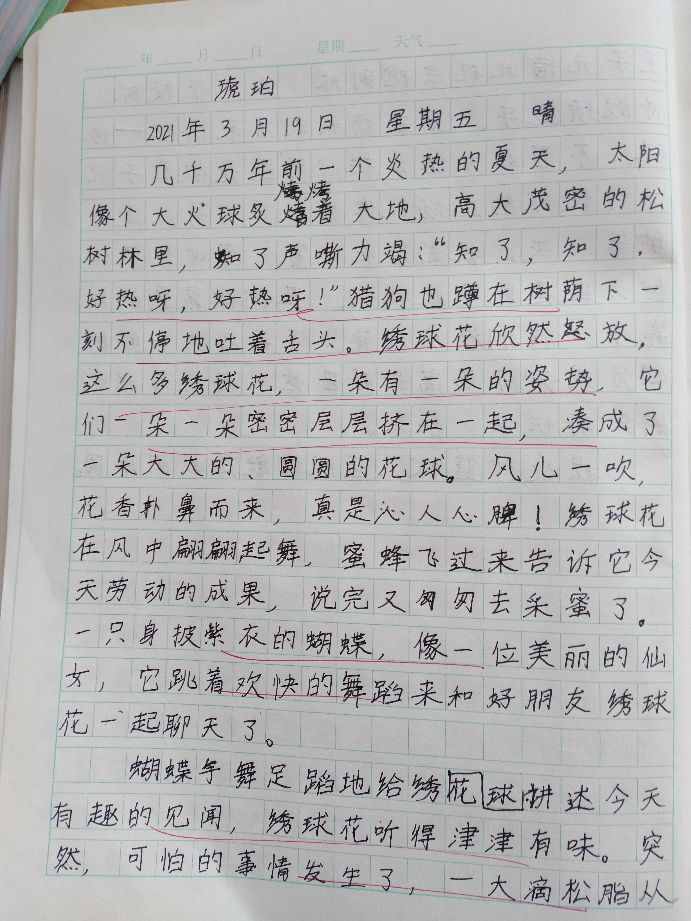 年 月 日 星期 天气
琥珀
2021年3月19日 星期五 晴
几十万年前一个炎热的夏天，太阳
像个大火球炙烤着大地，高大茂密的松
树林里，蜘了声嘶力竭：“知了，知了．
好热呀，好热呀！”猎狗也蹲在树荫下一
刻不停地吐着舌头。绣球花欣然怒放，
这么多绣球花，一朵有一朵的姿势，它
们一朵一朵密密层层挤在一起，凑成了
一朵大大的、圆圆的花球。风儿一吹，
花香扑鼻而来，真是沁人心脾！绣球花
在风中翩翩起舞，蜜蜂飞过来告诉它今
天劳动的成果，说完又匆匆去采蜜了。
一只身披紫衣的蝴蝶，像一位美丽的仙
女，它跳着欢快的舞蹈来和好朋友绣球
花一起聊天了。
蝴蝶手舞足蹈地给绣花球讲述今天
有趣的见闻，绣球花听得津津有味。突
然，可怕的事情发生了，一大滴松脂从